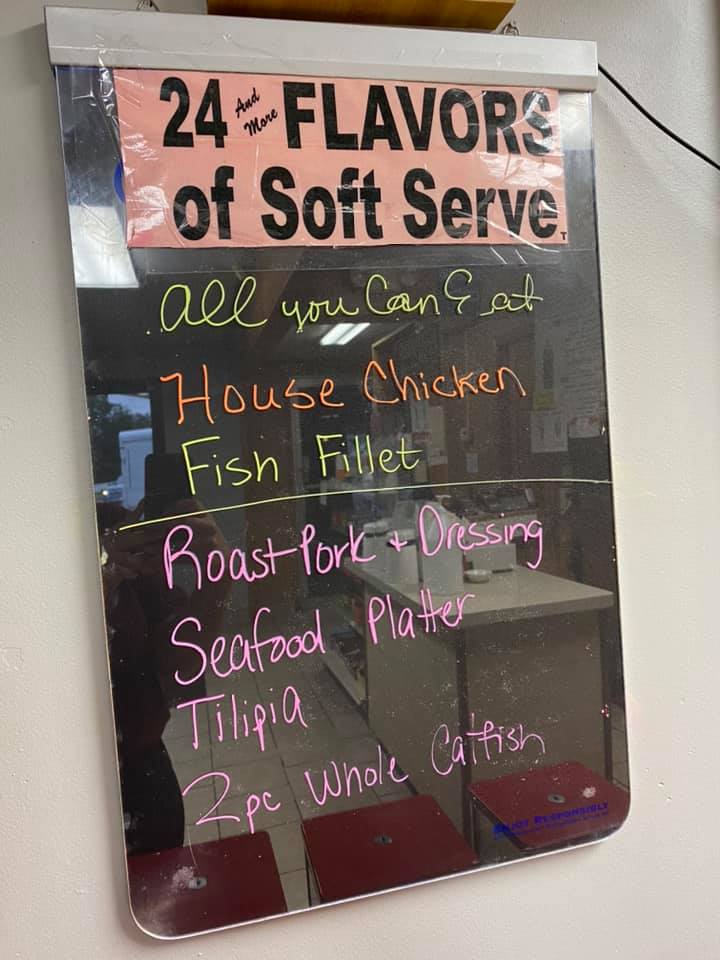 24 And More FLAVORS
of Soft Serve
All you Can Eat
House Chicken
Fish Fillet
Roast Pork + Dressing
Seafood Platter
Tilipia
2pc Whole Catfish
ENJOY RESPONSIBLY